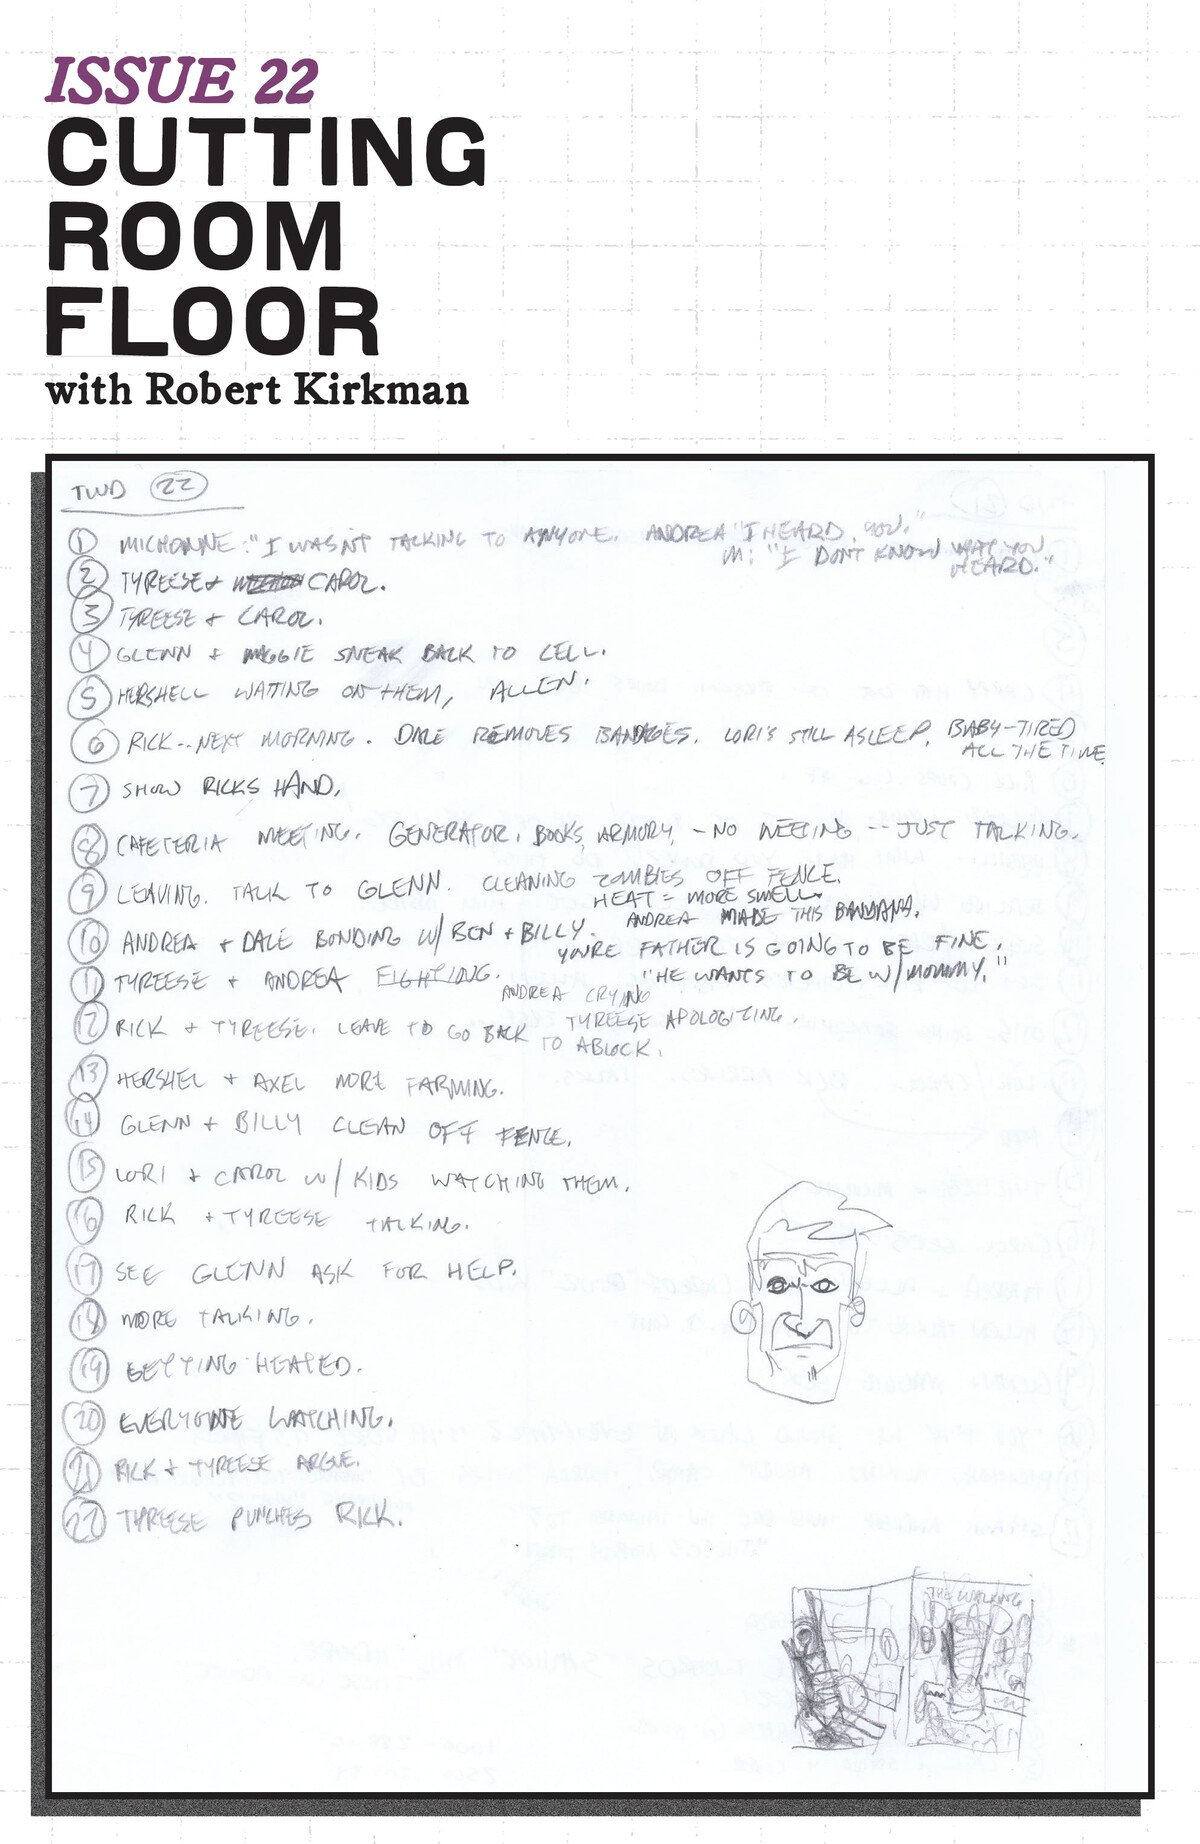 ISSUE 22
CUTTING
ROOM
FLOOR
with Robert Kirkman
TWD 22
1 MICHONNE: "I WASN'T TALKING TO ANYONE. ANDREA "I HEARD YOU."
M: "I DON'T KNOW WHAT YOU
HEARD."
2 TYREESE + CAROL.
3 TYREESE + CAROL.
4 GLENN + MAGGIE SNEAK BACK TO CELL.
5 HERSHELL WAITING ON THEM, ALLEN.
6 RICK -- NEXT MORNING. DALE REMOVES BANDAGES. LORI'S STILL ASLEEP. BABY-TIRED
ALL THE TIME.
7 SHOW RICKS HAND.
8 CAFETERIA MEETING. GENERATOR, BOOKS, ARMORY, - NO MEETING -- JUST TALKING.
9 LEAVING. TALK TO GLENN. CLEANING ZOMBIES OFF FENCE.
HEAT = MORE SMELL.
ANDREA MADE THIS BANDANA.
10 ANDREA + DALE BONDING W/ BEN + BILLY.
YOU'RE FATHER IS GOING TO BE FINE.
"HE WANTS TO BE W/ MOMMY."
11 TYREESE + ANDREA FIGHTING.
ANDREA CRYING
TYREESE APOLOGIZING.
12 RICK + TYREESE. LEAVE TO GO BACK
TO ABLOCK.
13 HERSHEL + AXEL MORE FARMING.
14 GLENN + BILLY CLEAN OFF FENCE.
15 LORI + CAROL W/ KIDS WATCHING THEM.
16 RICK + TYREESE TALKING.
17 SEE GLENN ASK FOR HELP.
18 MORE TALKING.
19 GETTING HEATED.
20 EVERYONE WATCHING.
21 RICK + TYREESE ARGUE.
22 TYREESE PUNCHES RICK.
THE WALKING
DEAD